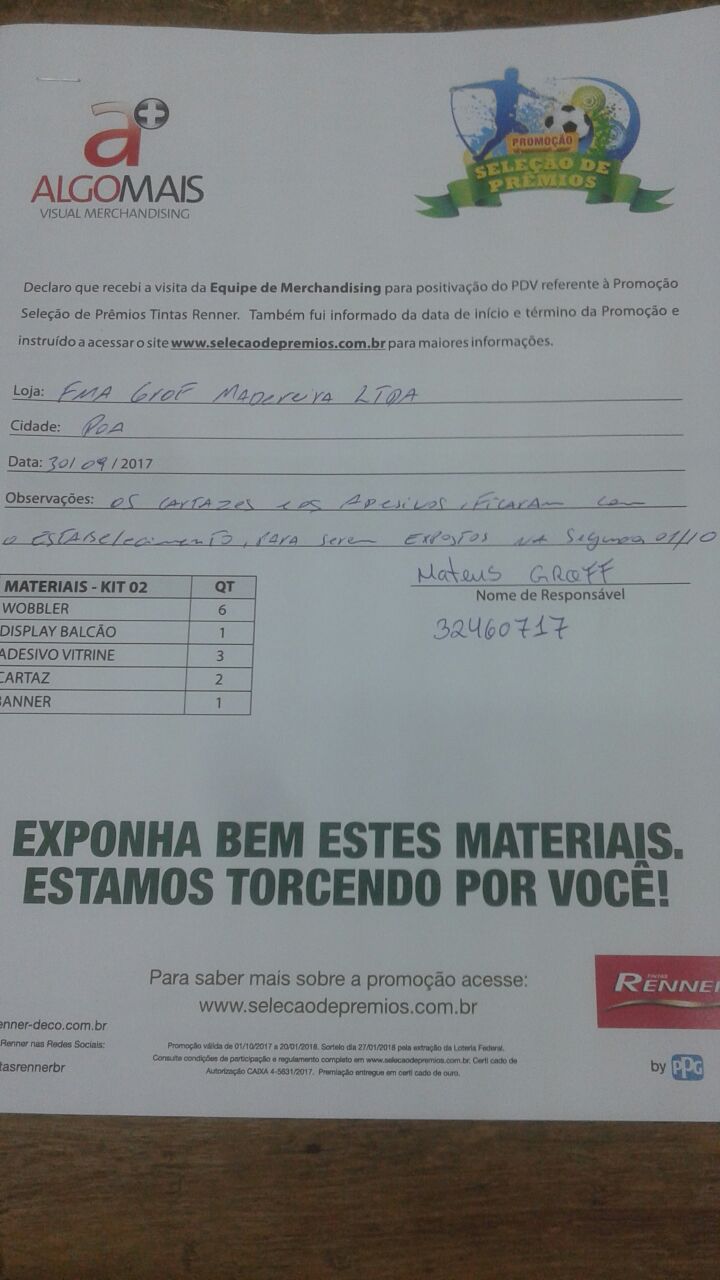 a+
ALGOMAIS
VISUAL MERCHANDISING
PROMOÇÃO
SELEÇÃO DE
PRÊMIOS
Declaro que recebi a visita da Equipe de Merchandising para positivação do PDV referente à Promoção
Seleção de Prêmios Tintas Renner. Também fui informado da data de início e término da Promoção e
instruído a acessar o site www.selecaodepremios.com.br para maiores informações.
Loja: FMA Grof Madereira LTDA
Cidade: POA
Data: 30/09/2017
Observações: os cartazes e os Adesivos, ficaram com
o estabelecimento, para serem expostos na segunda 01/10
Mateus GROFF
Nome de Responsável
32460717
MATERIAIS - KIT 02 QT
WOBBLER 6
DISPLAY BALCÃO 1
ADESIVO VITRINE 3
CARTAZ 2
BANNER 1
EXPONHA BEM ESTES MATERIAIS.
ESTAMOS TORCENDO POR VOCÊ!
Para saber mais sobre a promoção acesse:
www.selecaodepremios.com.br
TINTAS
RENNER
enner-deco.com.br
Renner nas Redes Sociais:
tasrennerbr
Promoção válida de 01/10/2017 a 20/01/2018. Sorteio dia 27/01/2018 pela extração da Loteria Federal.
Consulte condições de participação e regulamento completo em www.selecaodepremios.com.br. Certi cado de
Autorização CAIXA 4-5631/2017. Premiação entregue em certi cado de ouro.
by PPG